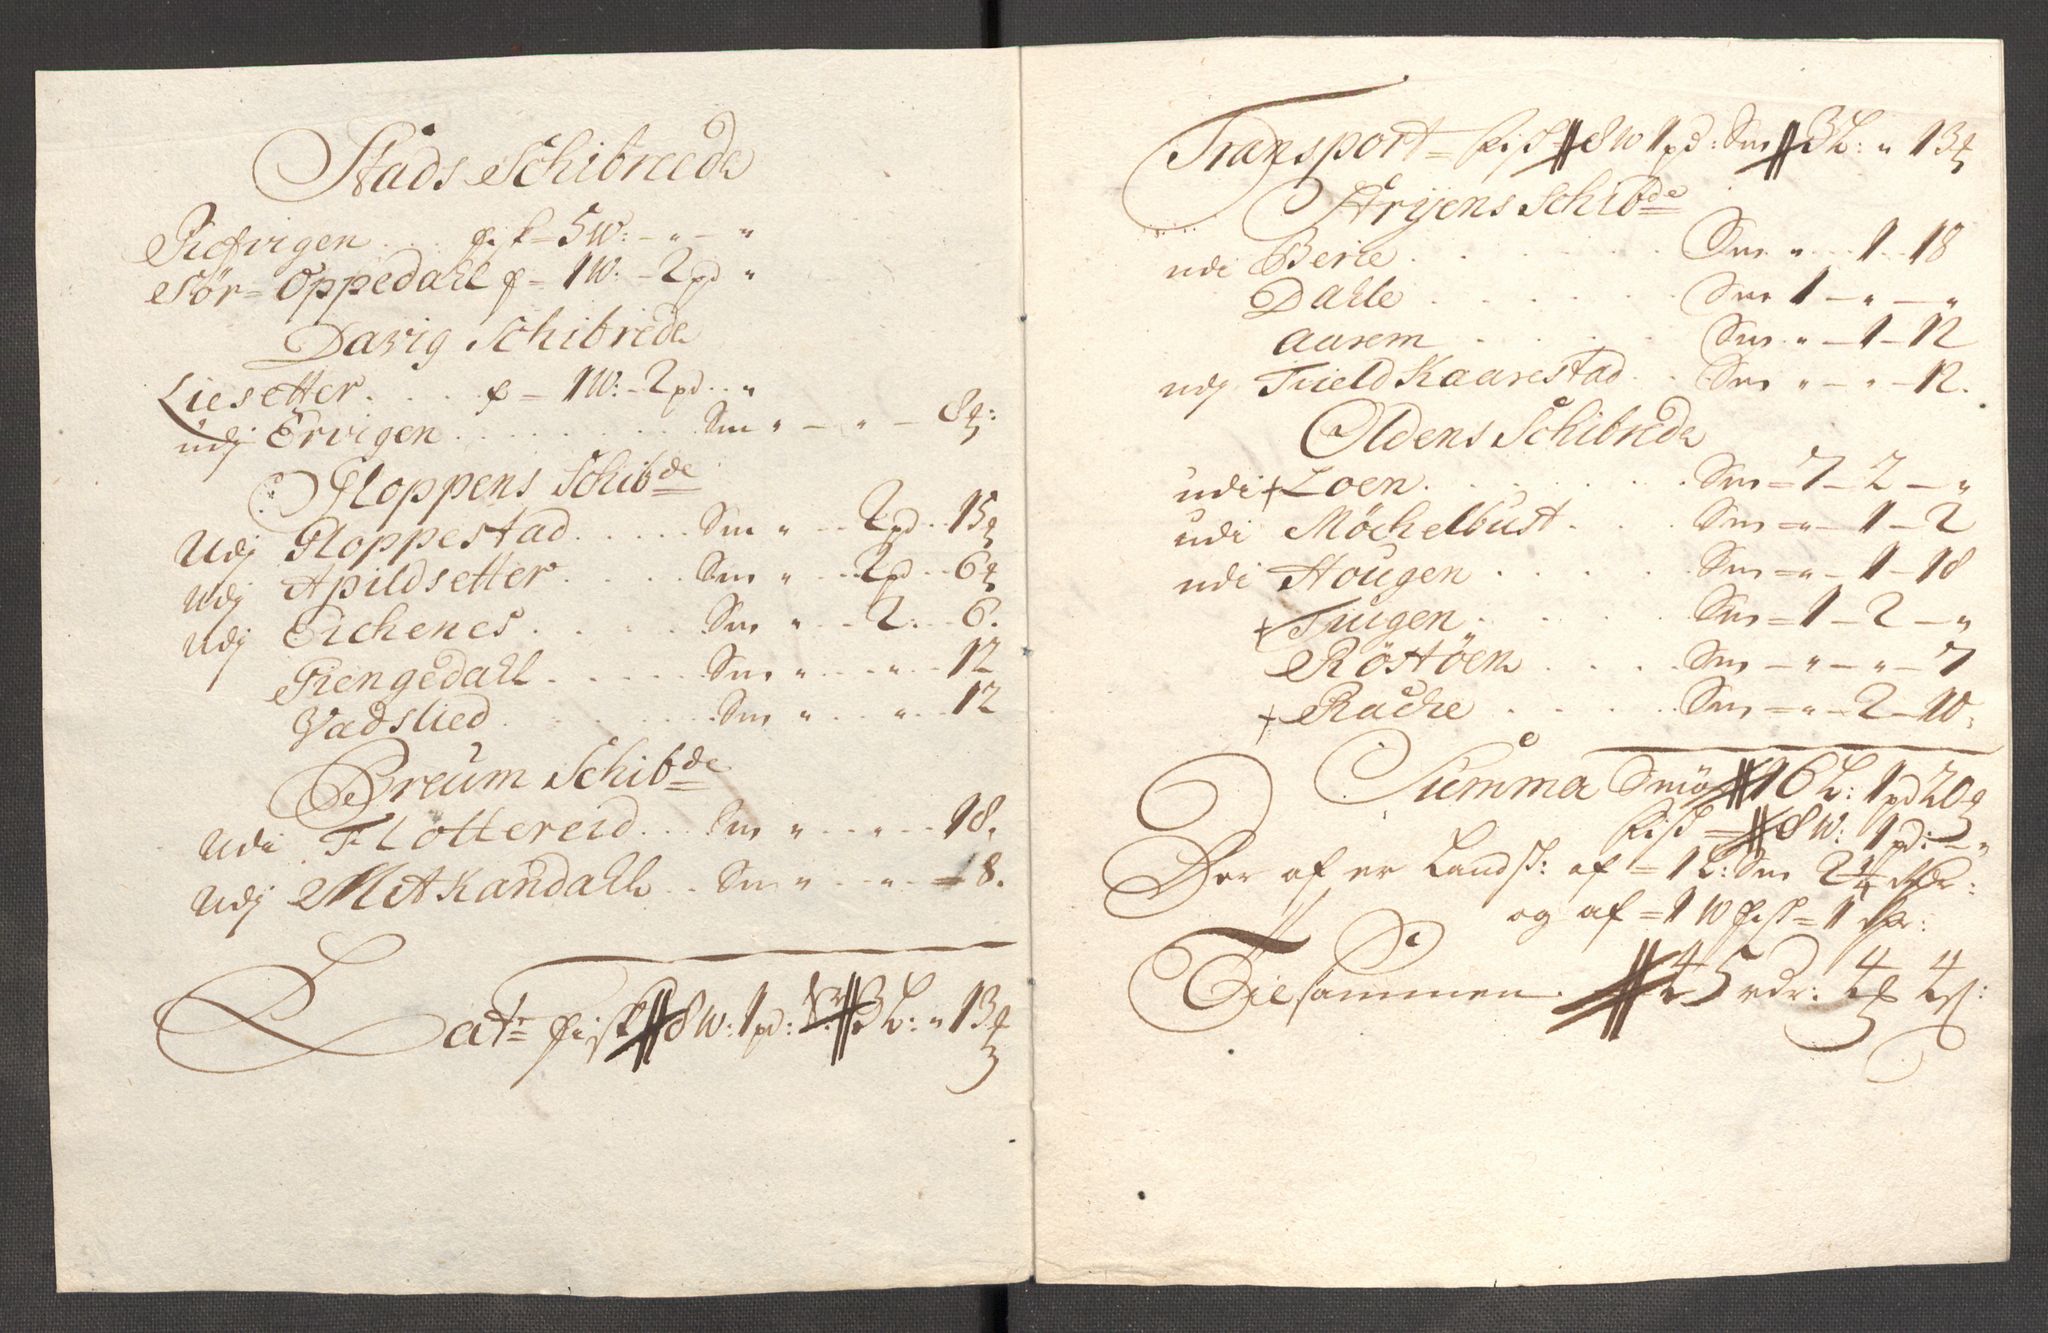 Stads Schibrede
Gictvigen . . . fisk = 5 W: - " - "
Sør = Oppedahl f = 1 W: - 2 pd "
Davig Schibrede
Liesetter . . . f - 1 W: - 2 pd . . "
udj Ervigen . . . . . . Sm " - " - 8 #:
Gloppens Schibde
Udj Gloppestad . . . . . Sm " . . . 2 pd . . 15 #
Udj Apildsetter . . . . Sm " . . . 2 pd . . 6 #
Udj Eichenes . . . . . Sm " . . . 2 . . . 6.
Giengedall . . . . . Sm " . . . " . . . 12
Vadslied . . . . . . Sm " . . . " . . . 12
Breum Schibde
Udi Flottereid . . . Sm " . . . " . . . 18.
Udj Mitkandall . . Sm " . . . " . . . 8.
Lat: fisk # 8 W: 1 pd: # 3 L: " 13 #
Transport = fisk # 8 W 1 pd: Sm # 3 L: " 13 #
Aryens Schibde
udi Berie . . . . . . . Sm " . . . 1 . . 18
Dalle . . . . . . Sm 1 - " - "
Aarem . . . . . Sm . . " - 1 - 12
udj Tield Kaarestad . . Sm " - " - 12.
Oldens Schibrede
udi + Loen . . . . . . . Sm = 7 - 2 - "
udi Möchelbust . . . . Sm = " - 1 - 2
udi Hougen . . . . . Sm = " - 1 - 18
+ Tiugen . . . . . Sm = 1 - 2 - "
Röstöen . . . . Sm - " - " - 7
+ Rache . . . . . Sm = " - 2 - 10,
Summa Smö # 16 L: 1 pd 20 #
fisk = # 8 W: 1 pd: - "
Der af er Landsk: af = 1 L: Sm 2 1/4 rdr:
og af = 1 W fisk = 1 rdr:
Tilsammen # 45 rdr: 4 # 4 s: